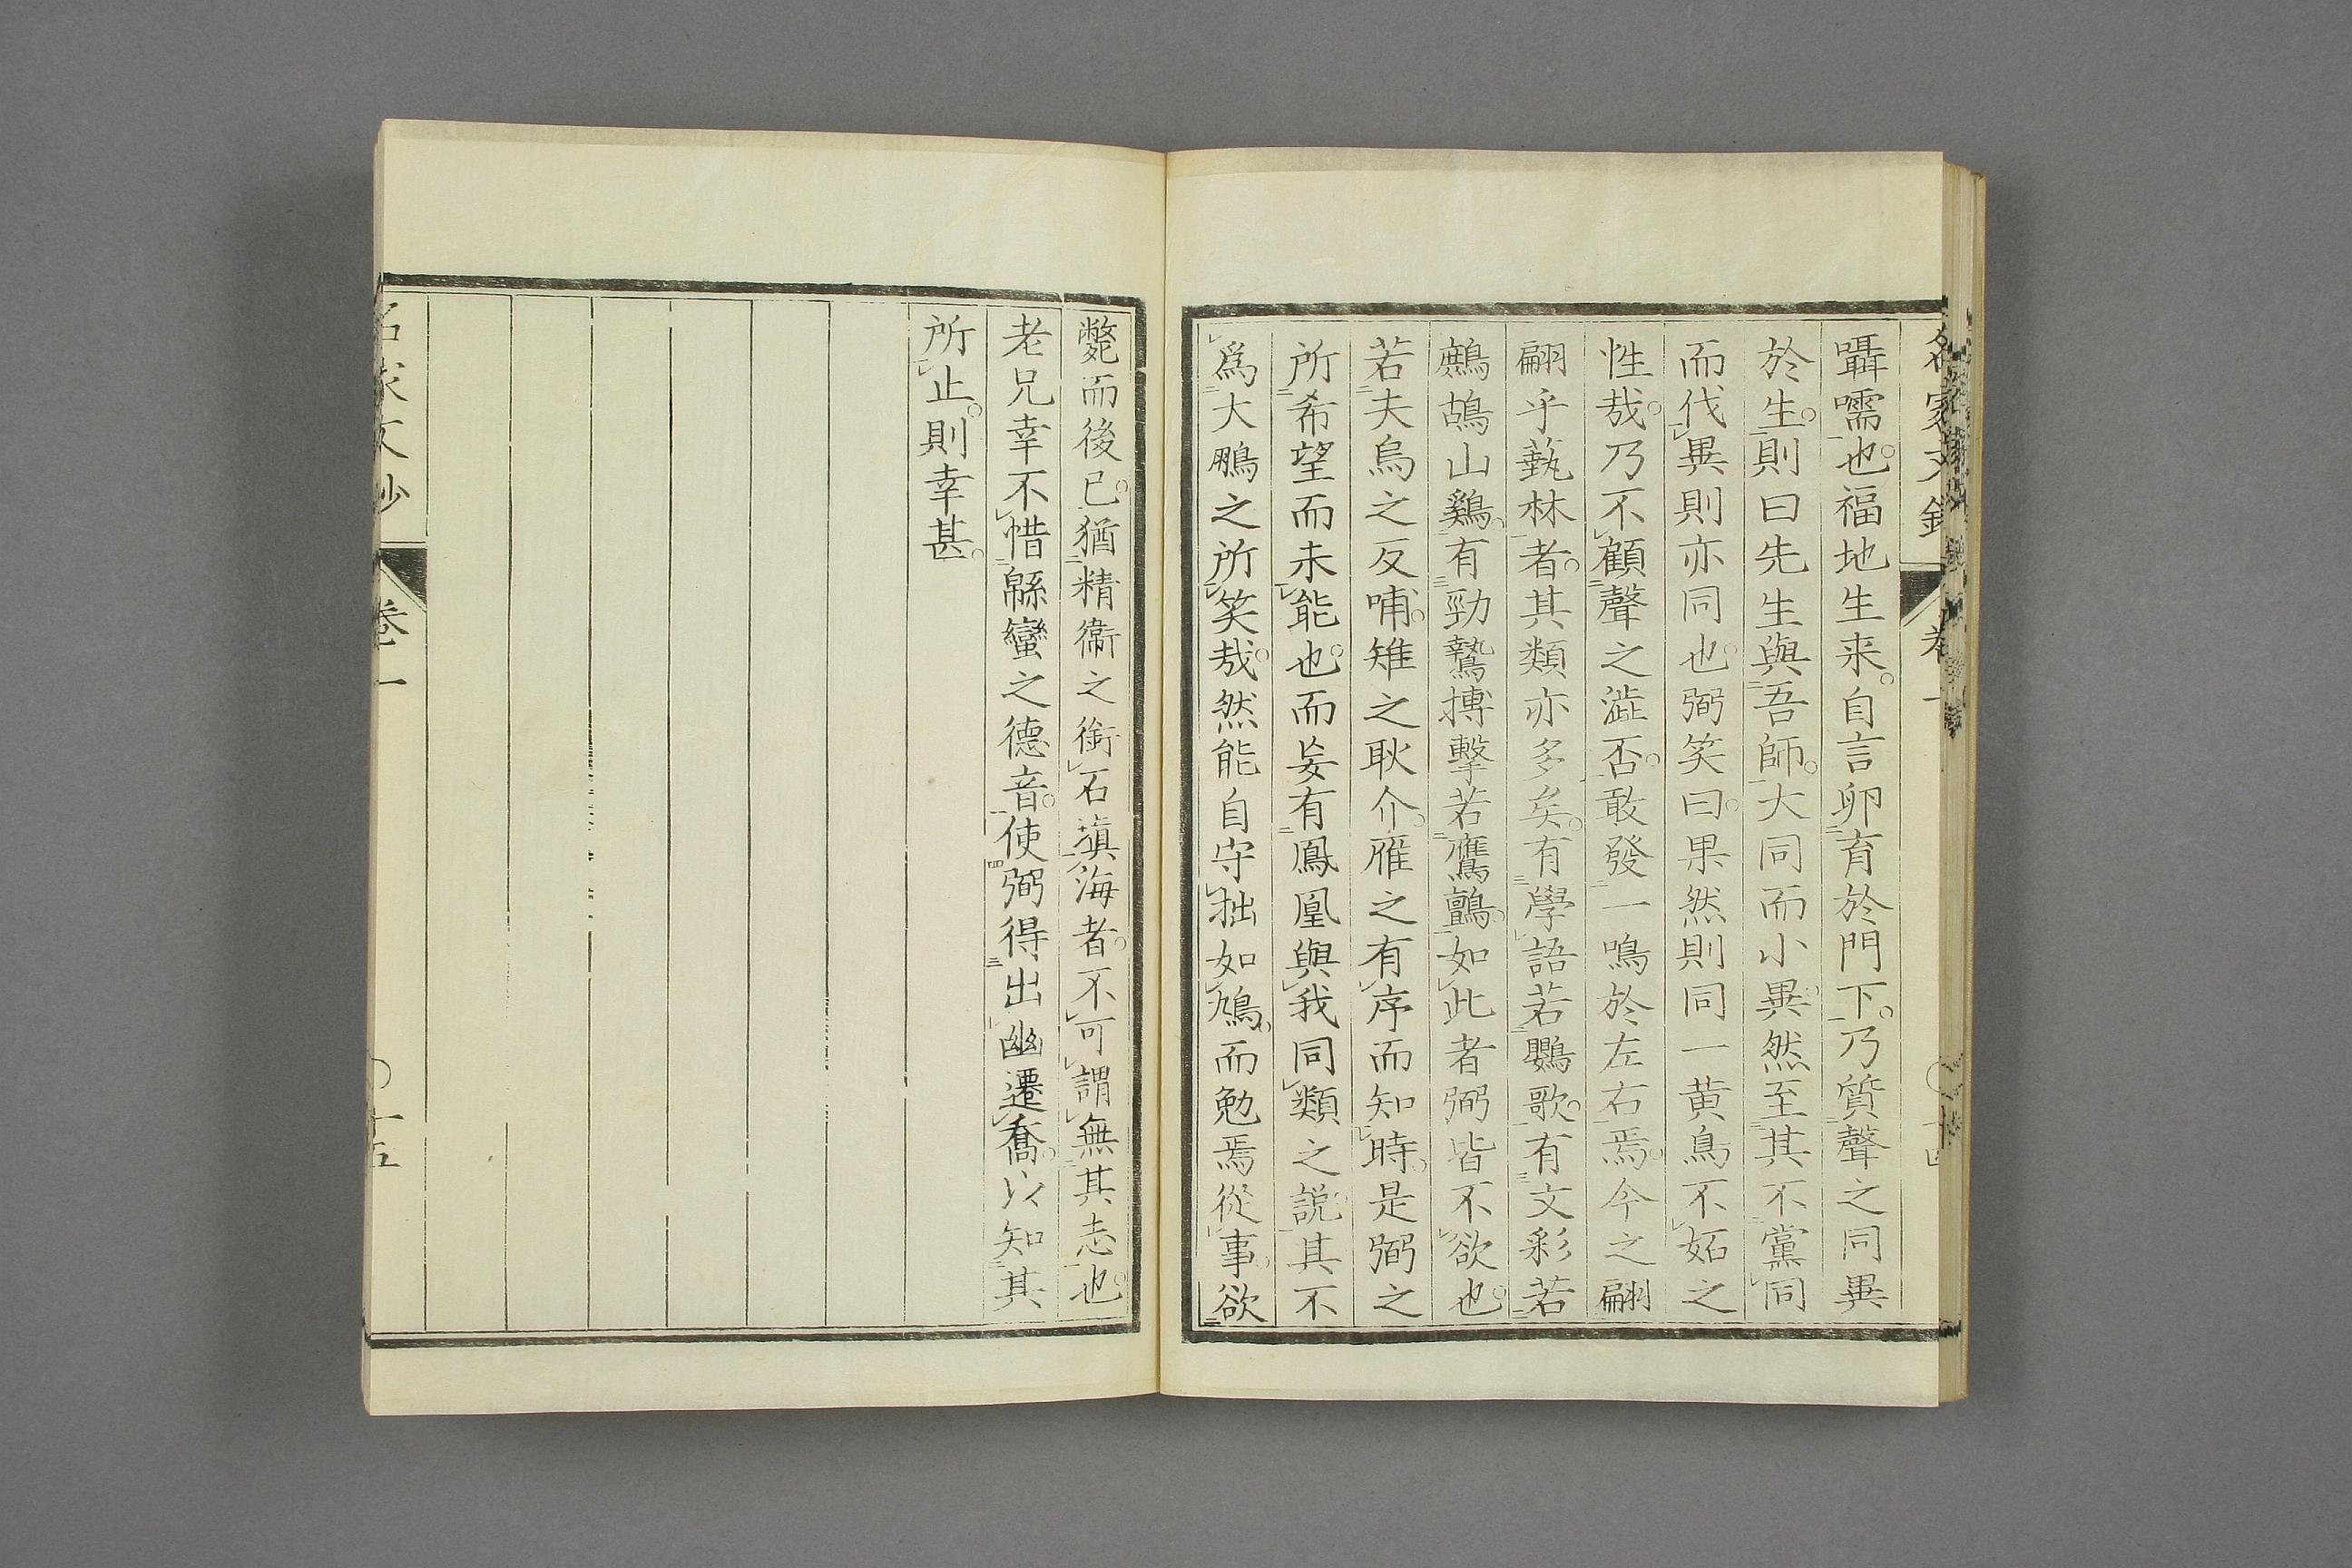 囁嚅也。福地生来。自言卵育於門下。乃質聲之同異
於生。則曰先生與吾師。大同而小異。然至其不黨同
而代異則亦同也。弼笑曰。果然則同一黄鳥不妬之
性哉。乃不顧聲之澁否。敢發一鳴於左右焉。今之翩
翩乎藝林者。其類亦多矣。有學語若鸚歌。有文彩若
鷓鴣山鷄。有勁鷙搏擊若鷹鸇。如此者弼皆不欲也。
若夫烏之反哺。雉之耿介。雁之有序而知時。是弼之
所希望而未能也。而妄有鳳凰與我同類之説。其不
爲大鵬之所笑哉。然能自守拙如鳩。而勉焉從事。欲
斃而後已。猶精衞之銜石塡海者。不可謂無其志也。
老兄幸不惜緜蠻之德音。使弼得出幽遷喬。以知其
所止。則幸甚。
名家文抄 卷一 〇十五